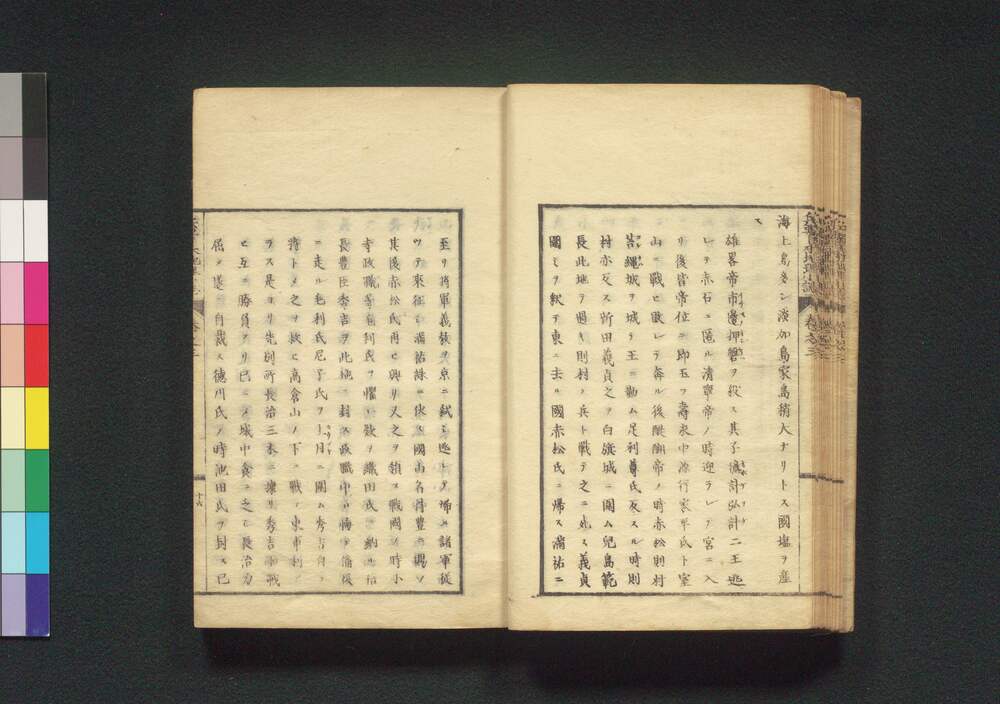 海上島多シ淡加島家島稍大ナリトス國塩ヲ産
ス
雄畧帝市邊押磐ヲ殺ス其子億計弘計二王逃
レテ赤石ニ匿ル清寧帝ノ時迎ラレテ宮ニ入
リ後皆帝位ニ即玉フ壽永中源行家平氏ト室
山ニ戰ヒ敗レテ奔ル後醍醐帝ノ時赤松則村
苔縄城ヲ城キ王ニ勤ム足利尊氏反スル時則
村亦反ス新田義貞之ヲ白旗城ニ圍ム兒島範
長此地ヲ過キ則村ノ兵ト戰テ之ニ死ス義貞
圍ミヲ釈テ東ニ去ル國赤松氏ニ帰ス滿祐ニ
至リ将軍義教ヲ京ニ弑シ逃レテ帰ル諸軍従
ツテ來征シ滿祐誅ニ伏ス國山名持豊ニ賜ハ
其後赤松氏再ヒ興リ又之ヲ領ス戰國ノ時小
寺政職等毛利氏ヲ懼レ欵ヲ織田氏ニ納ル祐
長豊臣秀吉ヲ此極ニ封ス政職中ロ悔テ備後
ニ走ル毛利氏尼子氏ヲ上月ニ圍ム秀吉自ラ
将トメ之ヲ救ヒ高倉山ノ下ニ戰テ東軍利ア
ラス是ヨリ先別所長治三木ニ據リ秀吉ト戰
ヒ互ニ勝負アリ已ニメ城中食ニ乏シ長治力
屈シ遂ニ自裁ス德川氏ノ時池田氏ヲ封ス已
卷之三
十六